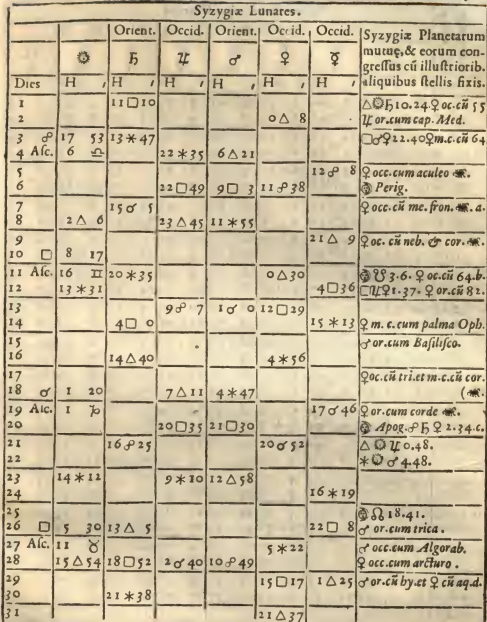 Syzygiæ Lunares.
Orient. Occid. Orient. Occid. Occid. Syzygiæ Planetarum
mutuę, & eorum con-
☉ ♄ ♃ ♂ ♀ ☿ greſſus cū illuſtriorib.
Dies H ′ H ′ H ′ H ′ H ′ H ′ aliquibus ſtellis fixis.
1 11 □ 10 △ ☉ ♄ 10.24. ♀ oc. cū 55
2 0 △ 8 ♃ or. cum cap. Med.
3 ☍ 17 53 13 ⚹ 47 □ ♂ ♀ 22.40 ♀ m. c. cū 64
4 Aſc. 6 ♎ 22 ⚹ 35 6 △ 21
5 12 ☍ 8 ♀ occ. cum aculeo
6 22 □ 49 9 □ 3 11 ☍ 38 Perig.
7 15 ☌ 5 ♀ occ. cū me. fron. a.
8 2 △ 6 23 △ 45 11 ⚹ 55
9 21 △ 9 ♀ oc. cū neb. & cor.
10 □ 8 17
11 Aſc. 16 ♊ 20 ⚹ 35 0 △ 30 ☋ 3.6. ♀ oc. cū 64. b.
12 13 ⚹ 31 4 □ 36 □ ♃ ♀ 1.37. ♀ or. cū 82.
13 9 ☍ 7 1 ☌ 0 12 □ 29
14 4 □ 0 15 ⚹ 13 ♀ m. c. cum palma Oph.
15 ♂ or. cum Baſiliſco.
16 14 △ 40 4 ⚹ 56
17 ♀ oc. cū tri. et m. c. cū cor.
18 ☌ 1 20 7 △ 11 4 ⚹ 47
19 Aſc. 1 ♑ 17 ☌ 46 ♀ or. cum corde
20 20 □ 35 21 □ 30 Apog. ☍ ♄ ♀ 2.34. c.
21 16 ☍ 25 20 ☌ 52 △ ☉ ♃ 0.48.
22 ⚹ ☉ ♂ 4.48.
23 14 ⚹ 12 9 ⚹ 10 12 △ 58
24 16 ⚹ 19
25 ☊ 18.41.
26 □ 5 30 13 △ 5 22 □ 8 ♂ or. cum trica.
27 Aſc. 11 ♉ 5 ⚹ 22 ♂ occ. cum Algorab.
28 15 △ 54 18 □ 52 2 ☌ 40 10 ☍ 49 ♀ occ. cum arcturo.
29 15 □ 17 1 △ 25 ♂ or. cū hy. et ♀ cū aq. d.
30 21 ⚹ 38
31 21 △ 37